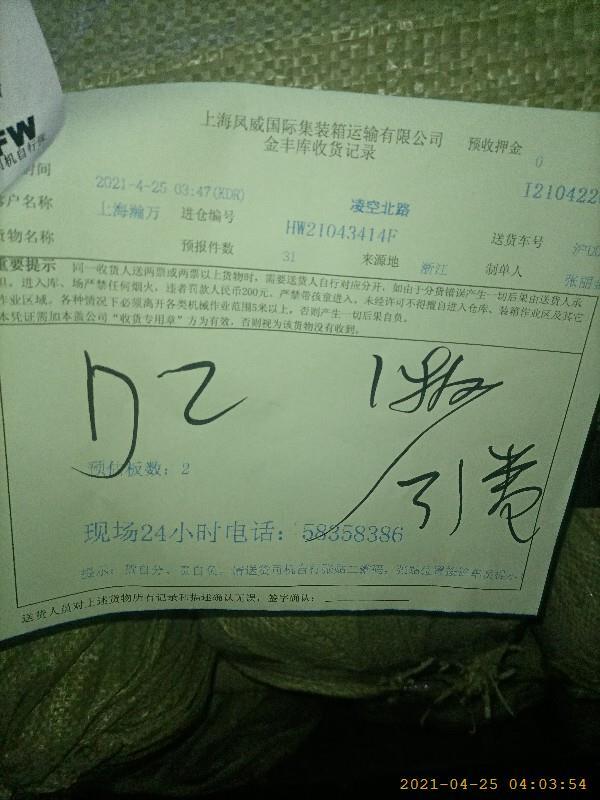 FW
上海凤威国际集装箱运输有限公司
预收押金 0
金丰库收货记录
时间 2021-4-25 03:47(KDR) 凌空北路 I2104220
客户名称 上海瀚万 进仓编号 HW21043414F 送货车号
货物名称 预报件数 31 来源地 浙江 制单人 张丽
重要提示 同一收货人送两票或两票以上货物时，需要送货人自行对应分开，如由于分货错误产生一切后果由送货人承
担，进入库、场严禁任何烟火，违者罚款人民币200元。严禁带孩童进入，未经许可不得擅自进入仓库、装箱作业区及其它
作业区域。各种情况下必须离开各类机械作业范围5米以上，否则产生一切后果自负。
本凭证需加本盖公司“收货专用章”方为有效，否则视为该货物没有收到。
预估板数：2
引卷
现场24小时电话：58358386
送货人员对上述货物所有记录和描述确认无误，签字确认：
2021-04-25 04:03:54